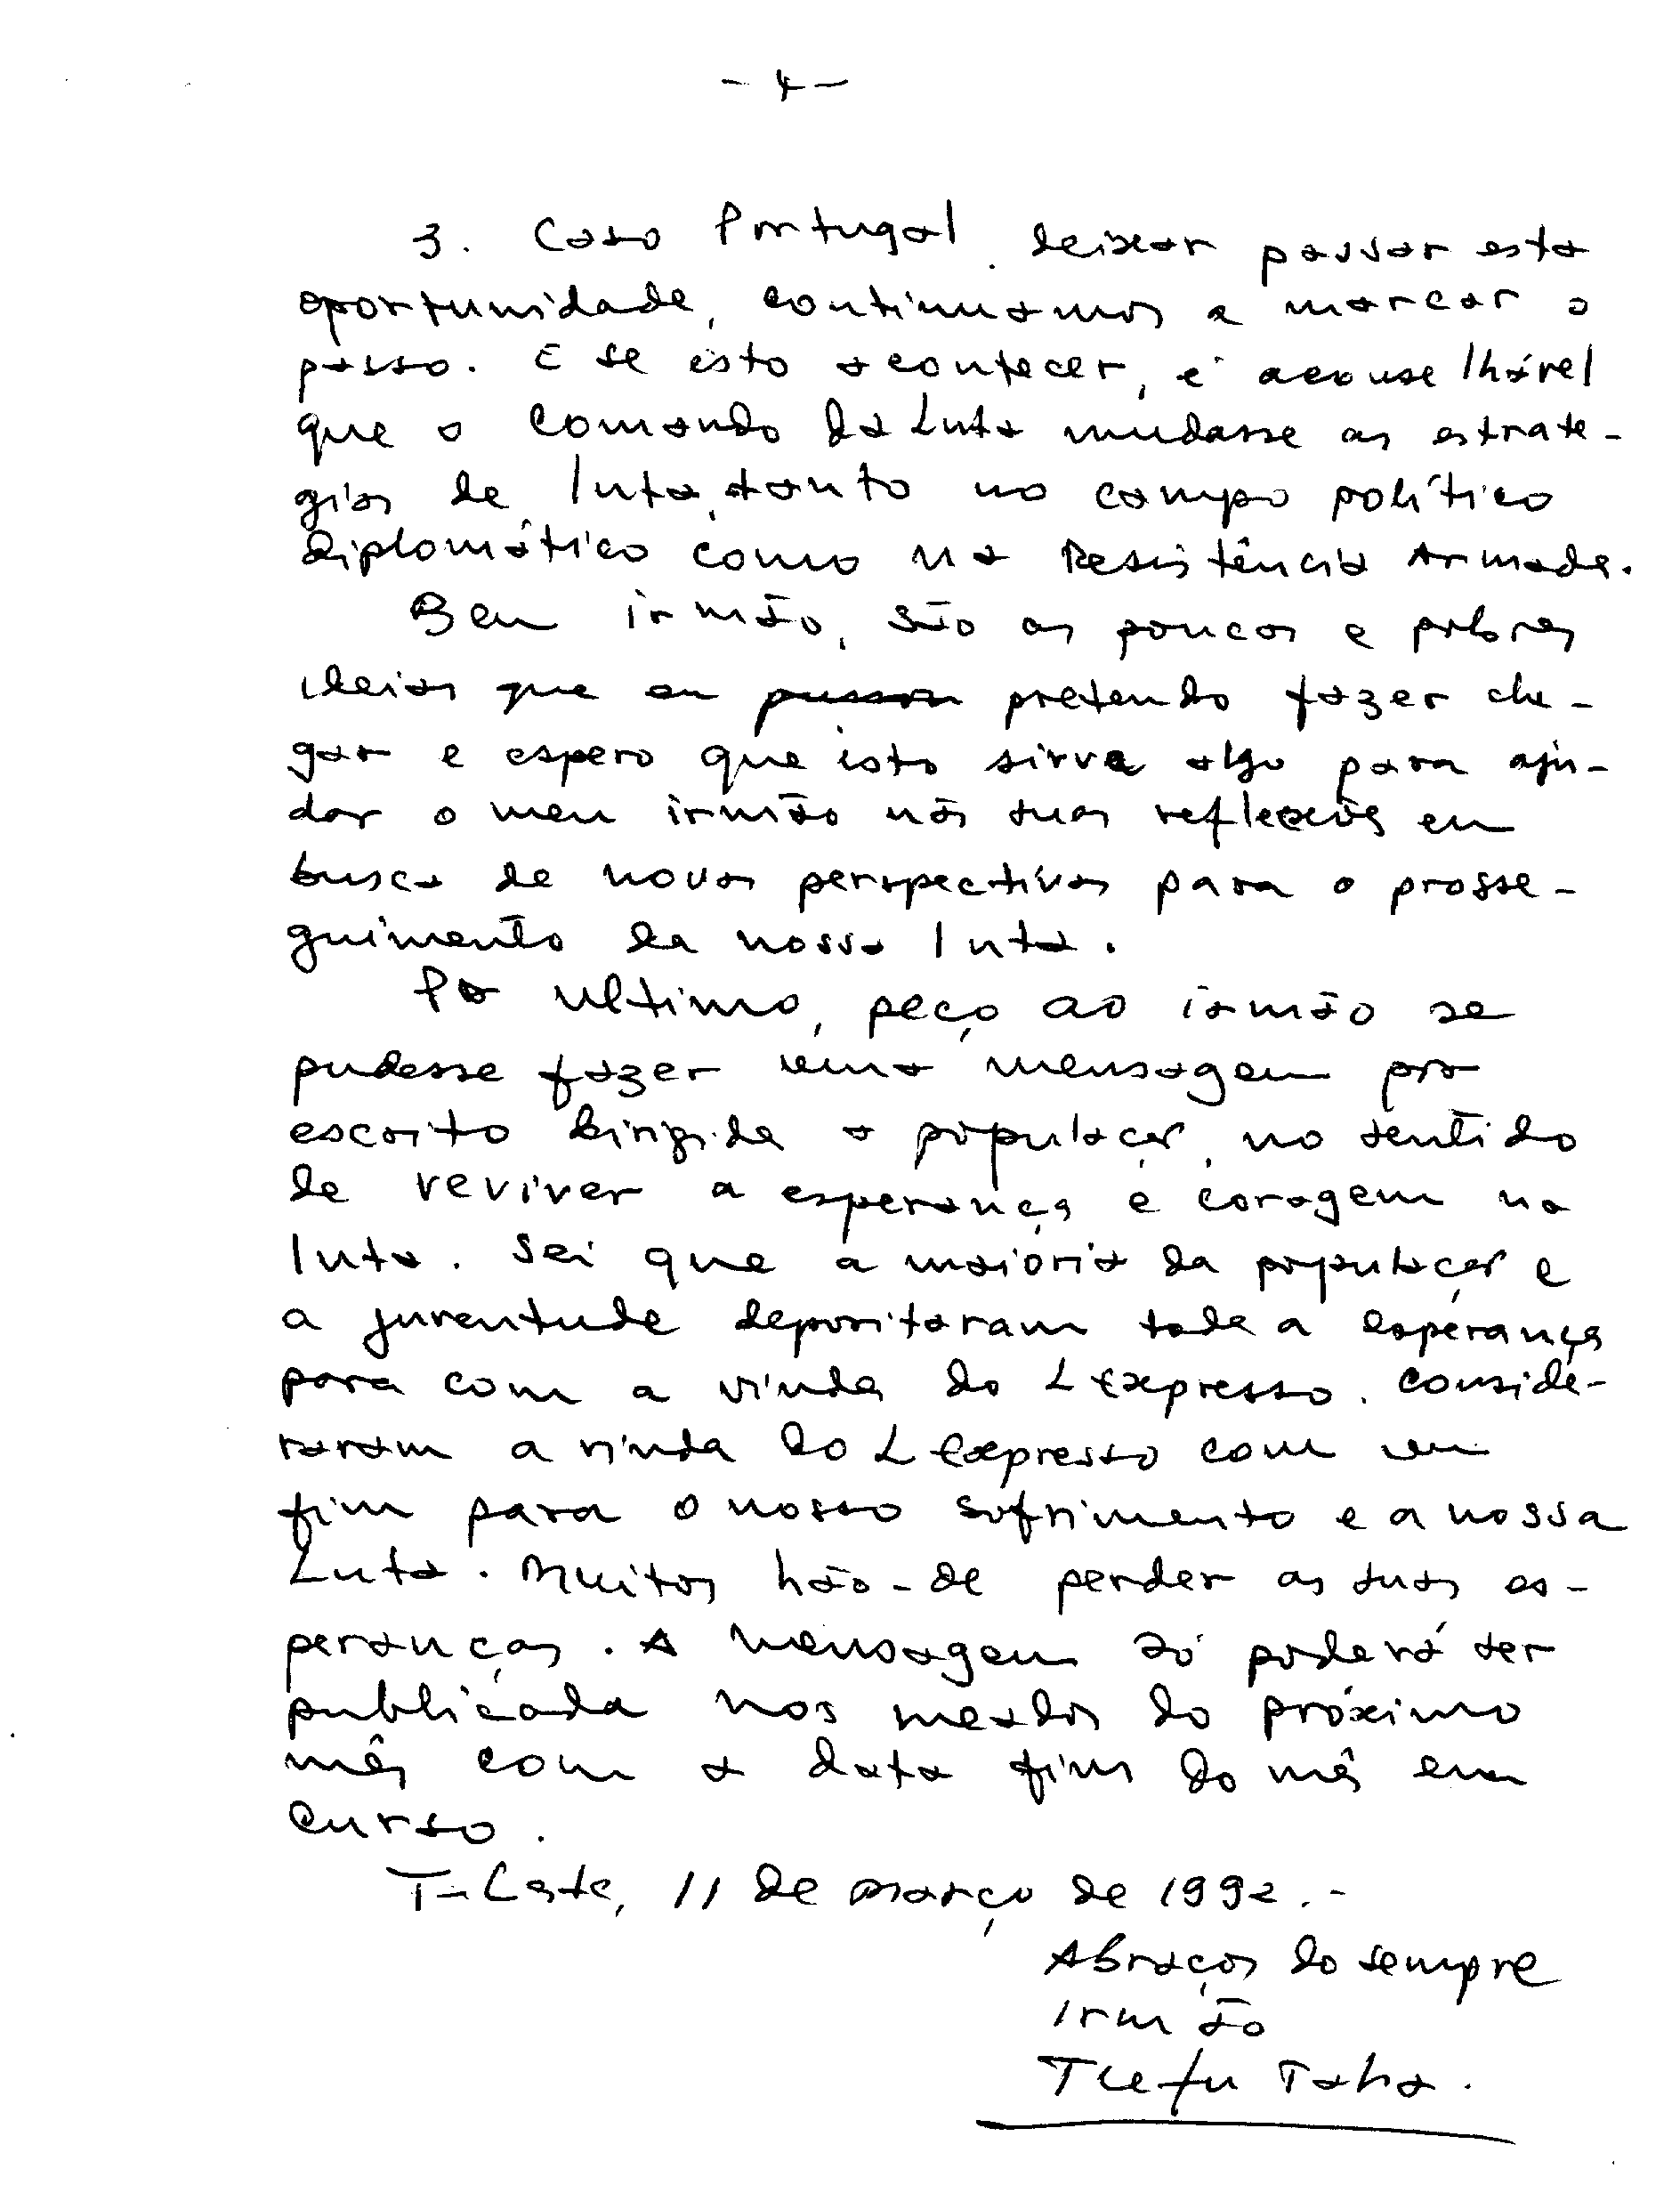 - 4 -
3. Caso Portugal deixar passar esta
oportunidade, continuamos a marcar o
passo. E se isto acontecer, é aconselhável
que o Comando da Luta mudasse as estraté-
gias de luta, tanto no campo político
diplomático como na Resistência Armada.
Bem irmão, são as poucas e pobres
ideias que eu pretendo fazer che-
gar e espero que isto sirva algo para aju-
dar o meu irmão nas suas reflexões em
busca de novas perspectivas para o prosse-
guimento da nossa luta.
Por ultimo, peço ao irmão se
pudesse fazer uma mensagem por
escrito dirigida a população, no sentido
de reviver a esperança e coragem na
luta. Sei que a maioria da população e
a juventude depositaram toda a esperança
para com a vinda do L Expresso. Conside-
raram a vinda do L Expresso com um
fim para o nosso sofrimento e a nossa
Luta. Muitos hão-de perder as suas es-
peranças. A mensagem só poderá ser
publicada nos meados do próximo
mês com a data fins do mês em
curso.
T-Leste, 11 de março de 1992.-
Abraços do sempre
Irmão
Tuefu Taha.